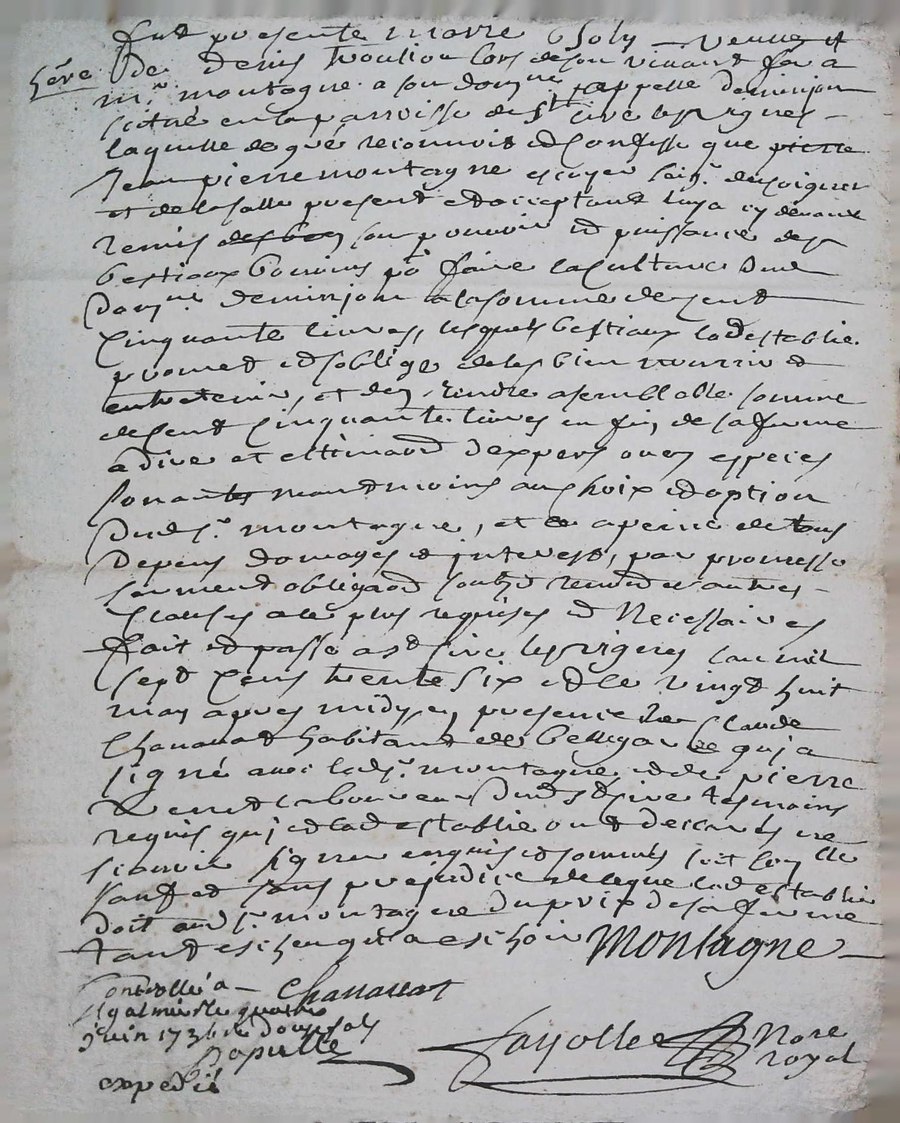 fut presente marie Soly veuve
5ére
de denis lors de son vivant
mr. montagne a son domne. appelle deminjon
scitué en la parroisse de st. sive les vignes
laquelle de gré reconnoit et confesse que pierre
Jean pierre montagne escuyer seigr. de poigner
et de la salle present et acceptant luy a cy devant
remis son pouvoir et puissance des
bestiaux bovins po faire la culture dud
domne. deminjon a la somme de cent
cinquante livres, lesquels bestiaux lad establie
promet et soblige de les bien nourrir et
entretenir, et den rendre a semblable somme
de cent cinquante livres en fin de sa ferme
a dire et estimaon dexpers ou en especes
sonantes au choix et option
dud sr. montagne, et a peine de tous
depens domages et interest, par promesse
serment obligaon soubz renon et autres
clauses a ce plus requises et Necessaires
fait et passé a st sive les vignes lan mil
sept cens trente six et le vingt huit
may apres midy en presence de Claude
Chanavat habitant de bellegarde qui a
signé avec led sr. montagne et de pierre
laboureur dud st sive tesmoins
requis qui et lad establie ont declaré ne
scavoir signer enquis et sommés soit
sauf et sans prejudice de ce que lad establie
doit aud sr. montagne du prix de sa ferme
tant escheu qu'a eschoir Montagne
Controllé a Chanavat
st galmier le quatre
juin 1736 re douze sols
Dapulle
Fayolle Nore
royal
expedié